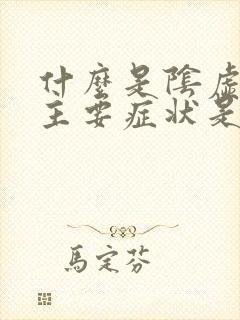 什麼是陰虛
主要症狀是
馬定芬